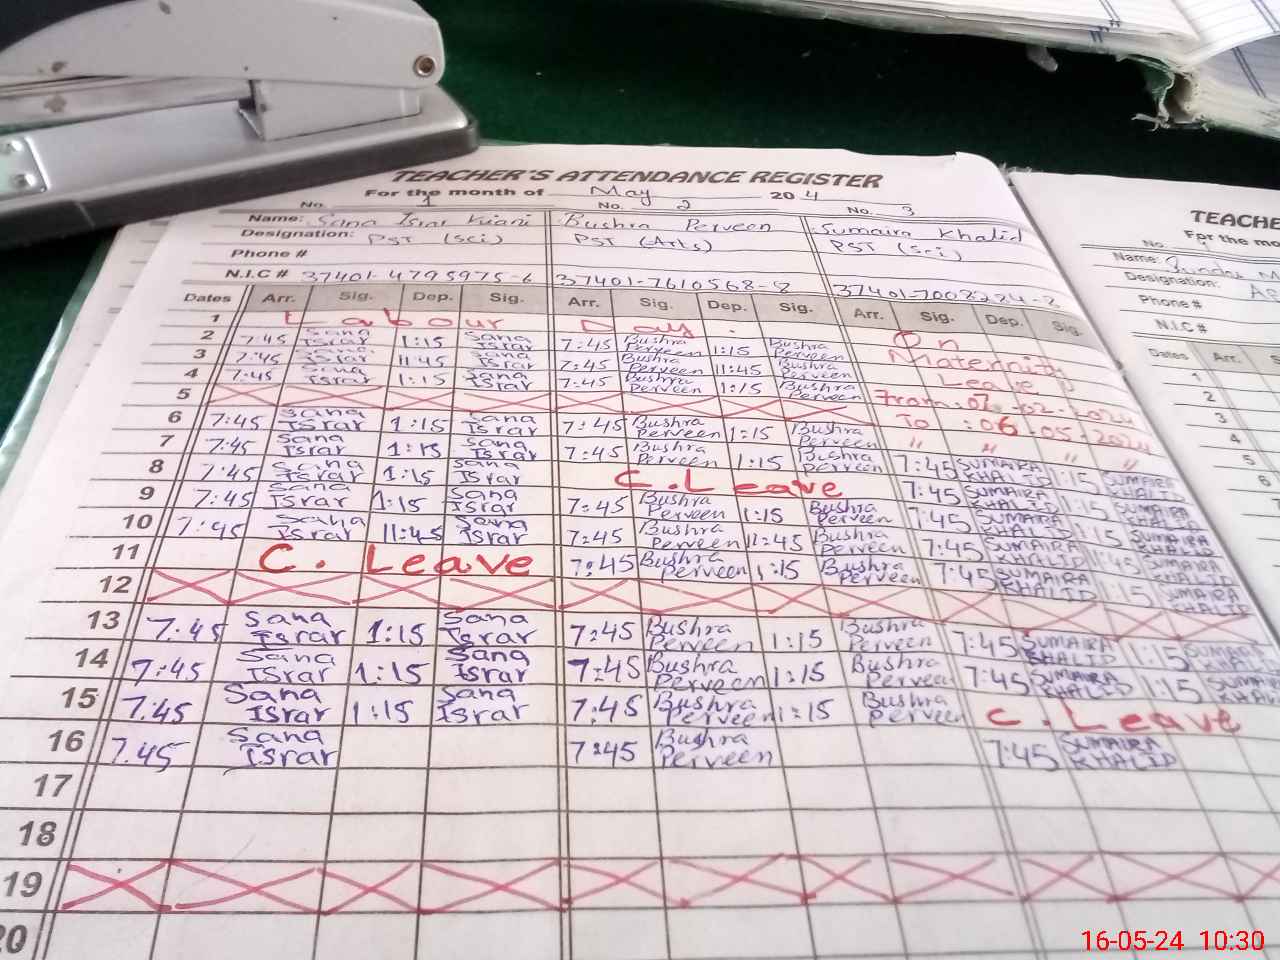 TEACHER'S ATTENDANCE REGISTER
For the month of May 20 4
No. 1 No. 2 No. 3
Name: Sana Israr Kiani Bushra Perveen Sumaira Khalid
Designation: PST (Sci) PST (Arts) PST (Sci)
Phone #
N.I.C # 37401-4795975-6 37401-7610568-8
Dates Arr. Sig. Dep. Sig. Arr. Sig. Dep. Sig. Arr. Sig. Dep. Sig.
1 Labour Day. On
2 7:45 Sana Israr 1:15 Sana Israr 7:45 Bushra Perveen 1:15 Bushra Perveen Maternity
3 7:45 Sana Israr 11:45 Sana Israr 7:45 Bushra Perveen 11:45 Bushra Perveen Leave
4 7:45 Sana Israr 1:15 Sana Israr 7:45 Bushra Perveen 1:15 Bushra Perveen From :07-02-2024
5 To :06-05-2024
6 7:45 Sana Israr 1:15 Sana Israr 7:45 Bushra Perveen 1:15 Bushra Perveen " " " "
7 7:45 Sana Israr 1:15 Sana Israr 7:45 Bushra Perveen 1:15 Bushra Perveen 7:45 SUMAIRA KHALID 1:15 SUMAIRA KHALID
8 7:45 Sana Israr 1:15 Sana Israr C.Leave 7:45 SUMAIRA KHALID 1:15 SUMAIRA KHALID
9 7:45 Sana Israr 1:15 Sana Israr 7:45 Bushra Perveen 1:15 Bushra Perveen 7:45 SUMAIRA KHALID 1:15 SUMAIRA KHALID
10 7:45 Sana Israr 11:45 Sana Israr 7:45 Bushra Perveen 11:45 Bushra Perveen 7:45 SUMAIRA KHALID :15 SUMAIRA KHALID
11 C. Leave 7:45 Bushra Perveen 1:15 Bushra Perveen 7:45 SUMAIRA KHALID 1:15 SUMAIRA KHALID
12
13 7:45 Sana Israr 1:15 Sana Israr 7:45 Bushra Perveen 1:15 Bushra Perveen 7:45 SUMAIRA KHALID 1:15 SUMAIRA KHALID
14 7:45 Sana Israr 1:15 Sana Israr 7:45 Bushra Perveen 1:15 Bushra Perveen 7:45 SUMAIRA KHALID 1:15 SUMAIRA KHALID
15 7:45 Sana Israr 1:15 Sana Israr 7:45 Bushra Perveen 1:15 Bushra Perveen C. Leave
16 7:45 Sana Israr 7:45 Bushra Perveen 7:45 SUMAIRA KHALID
17
18
19
20
TEACHE
For the mo
No. 1
Name:
Designation:
Phone #
N.I.C #
Dates Arr.
1
2
3
4
5
6
16-05-24 10:30